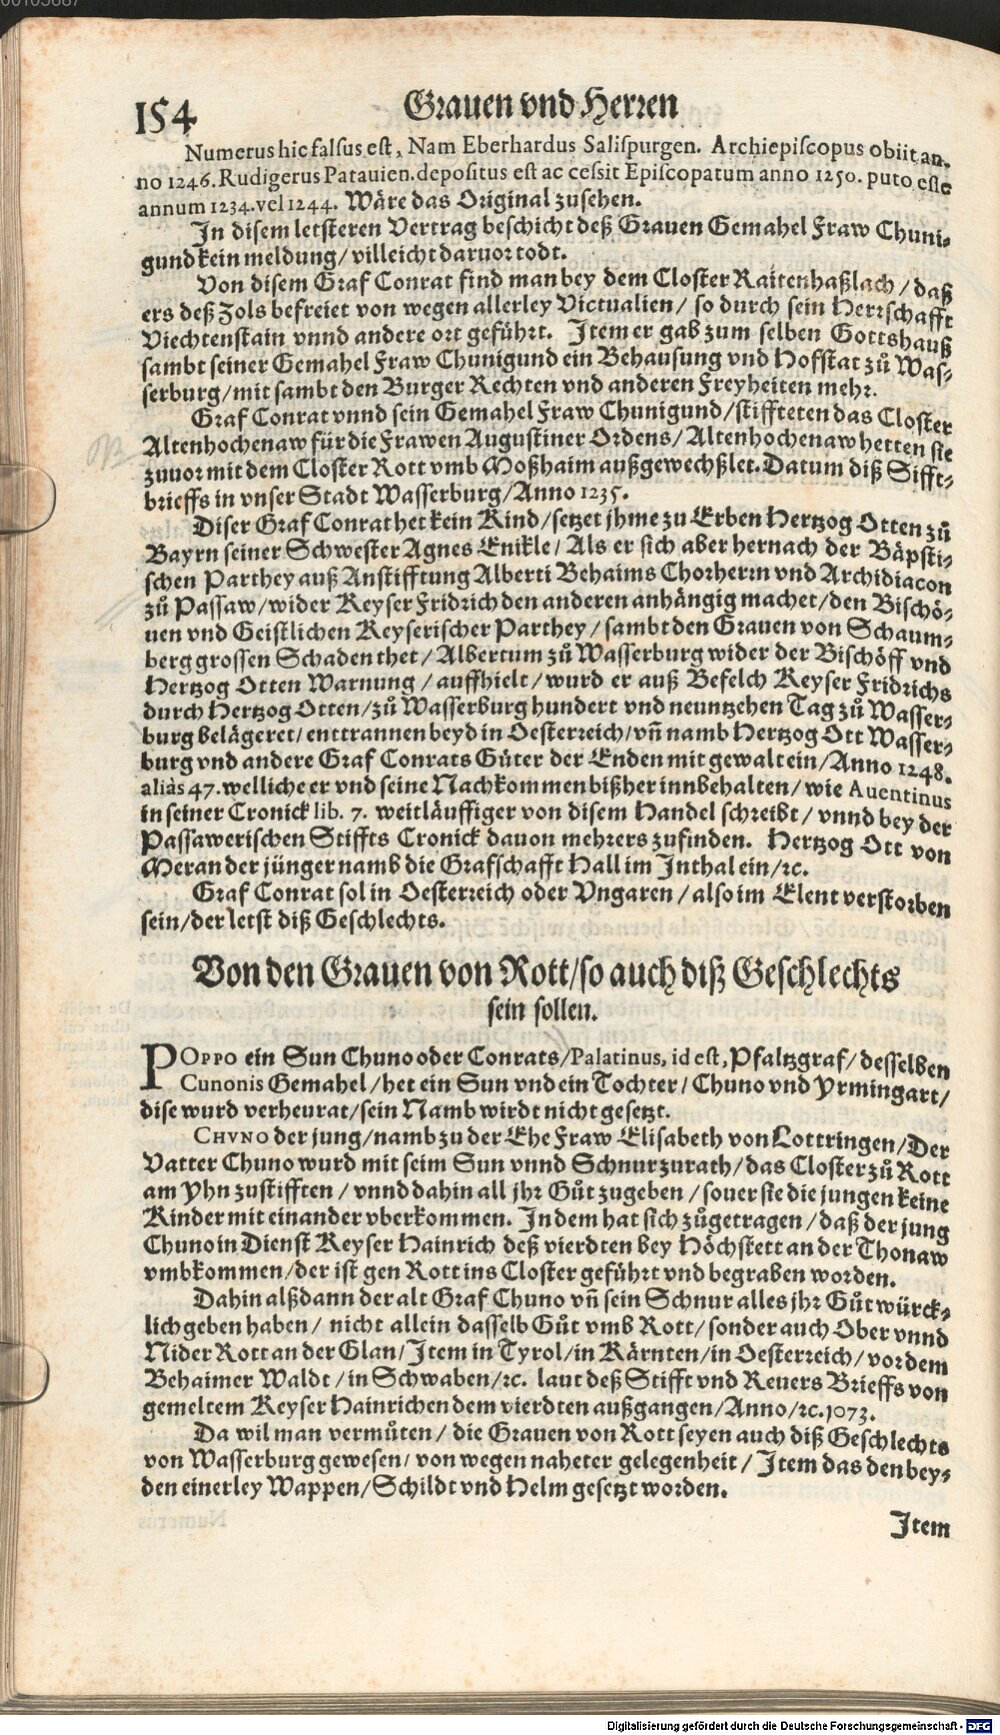 154
Grauen vnd Herren
Numerus hic falsus est, Nam Eberhardus Salispurgen. Archiepiscopus obiit an-
no 1246. Rudigerus Patauien. depositus est ac cessit Episcopatum anno 1250. puto esse
annum 1234. vel 1244. Wäre das Original zusehen.
In disem letsteren Vertrag beschicht deß Grauen Gemahel Fraw Chuni-
gund kein meldung/ villeicht daruor todt.
Von disem Graf Conrat find man bey dem Closter Raitenhaßlach/ daß
ers deß Zols befreiet von wegen allerley Victualien/ so durch sein Herrschafft
Viechtenstain vnnd andere ort geführt. Item er gab zum selben Gottshauß
sambt seiner Gemahel Fraw Chunigund ein Behausung vnd Hofstat zů Was-
serburg/ mit sambt den Burger Rechten vnd anderen Freyheiten mehr.
Graf Conrat vnnd sein Gemahel Fraw Chunigund/ stiffteten das Closter
Altenhochenaw für die Frawen Augustiner Ordens/ Altenhochenaw hetten sie
zuuor mit dem Closter Rott vmb Moßhaim außgewechßlet. Datum diß Sifft-
brieffs in vnser Stadt Wasserburg/ Anno 1235.
Diser Graf Conrat het kein Kind/ setzet jhme zu Erben Hertzog Otten zů
Bayrn seiner Schwester Agnes Enikle/ Als er sich aber hernach der Bäpsti-
schen Parthey auß Anstifftung Alberti Behaims Chorherrn vnd Archidiacon
zů Passaw/ wider Keyser Fridrich den anderen anhängig machet/ den Bischö-
uen vnd Geistlichen Keyserischer Parthey/ sambt den Grauen von Schaum-
berg grossen Schaden thet/ Albertum zů Wasserburg wider der Bischöff vnd
Hertzog Otten Warnung/ auffhielt/ wurd er auß Befelch Keyser Fridrichs
durch Hertzog Otten/ zů Wasserburg hundert vnd neuntzehen Tag zů Wasser-
burg belägeret/ enttrannen beyd in Oesterreich/ vñ namb Hertzog Ott Wasser-
burg vnd andere Graf Conrats Güter der Enden mit gewalt ein/ Anno 1248.
aliàs 47. welliche er vnd seine Nachkommen bißher innbehalten/ wie Auentinus
in seiner Cronick lib. 7. weitläuffiger von disem Handel schreibt/ vnnd bey der
Passawerischen Stiffts Cronick dauon mehrers zufinden. Hertzog Ott von
Meran der jünger namb die Grafschafft Hall im Inthal ein/ ꝛc.
Graf Conrat sol in Oesterreich oder Vngaren/ also im Elent verstorben
sein/ der letst diß Geschlechts.
Von den Grauen von Rott/ so auch diß Geschlechts
sein sollen.
POPPO ein Sun Chuno oder Conrats/ Palatinus, id est, Pfaltzgraf/ desselben
Cunonis Gemahel/ het ein Sun vnd ein Tochter/ Chuno vnd Yrmingart/
dise wurd verheurat/ sein Namb wirdt nicht gesetzt.
CHVNO der jung/ namb zu der Ehe Fraw Elisabeth von Lottringen/ Der
Vatter Chuno wurd mit seim Sun vnnd Schnur zurath/ das Closter zů Rott
am Yhn zustifften/ vnnd dahin all jhr Gůt zugeben/ souer sie die jungen keine
Kinder mit einander vberkommen. In dem hat sich zůgetragen/ daß der jung
Chuno in Dienst Keyser Hainrich deß vierdten bey Höchstett an der Thonaw
vmbkommen/ der ist gen Rott ins Closter geführt vnd begraben worden.
Dahin alßdann der alt Graf Chuno vñ sein Schnur alles jhr Gůt würck-
lich geben haben/ nicht allein dasselb Gůt vmb Rott/ sonder auch Ober vnnd
Nider Rott an der Glan/ Item in Tyrol/ in Kärnten/ in Oesterreich/ vor dem
Behaimer Waldt/ in Schwaben/ ꝛc. laut deß Stifft vnd Reuers Brieffs von
gemeltem Keyser Hainrichen dem vierdten außgangen/ Anno/ ꝛc. 1073.
Da wil man vermůten/ die Grauen von Rott seyen auch diß Geschlechts
von Wasserburg gewesen/ von wegen naheter gelegenheit/ Item das den bey-
den einerley Wappen/ Schildt vnd Helm gesetzt worden.
Item
Digitalisierung gefördert durch die Deutsche Forschungsgemeinschaft - DFG